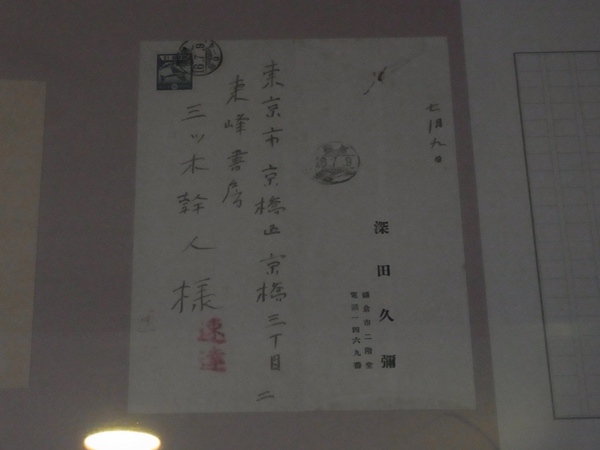 七月九日
深田久彌
鎌倉市二階堂
電話一四六九番
東京市京橋区京橋三丁目二
東峰書房
三ツ木幹人様
速達